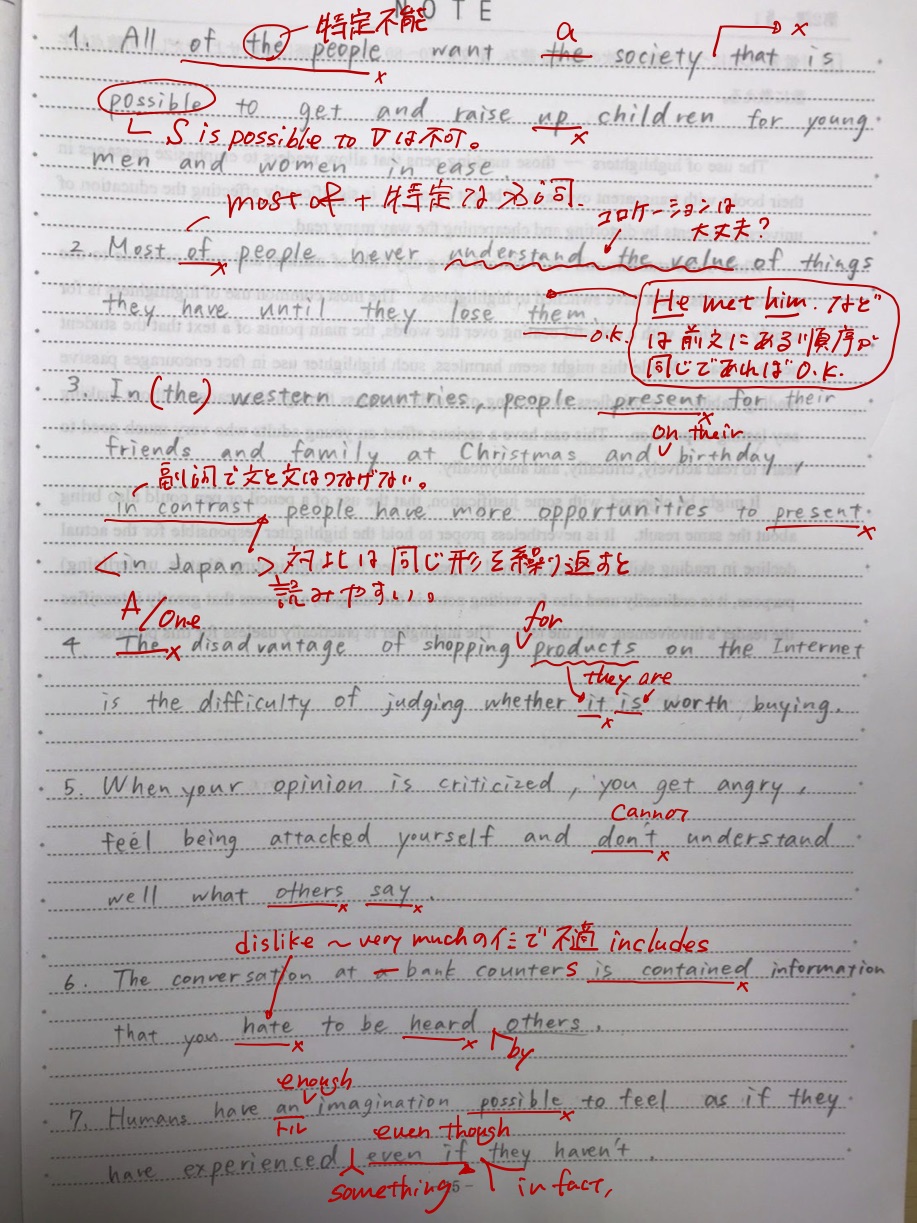 NOTE
特定不能
a
x
1. All of the people want the society that is
x
possible to get and raise up children for young
S is possible to Vは不可。
x
men and women in ease.
most of + 特定
コロケーションは
大丈夫?
2 Most of people never understand the value of things
x
they have until they lose them.
O.K.
He met him. など
は前文にある順序が
同じであればO.K.
3. In (the) western countries, people present for their
x
on their
friends and family at Christmas and birthday,
副詞で文と文はつなげない。
in contrast, people have more opportunities to present
x
<in Japan> 対比は同じ形を繰り返すと
読みやすい。
A/One
for
4. The disadvantage of shopping products on the Internet
x
they are
is the difficulty of judging whether it is worth buying.
x
5. When your opinion is criticized, you get angry,
cannot
feel being attacked yourself and don't understand
x
well what others say.
x x
dislike ~ very muchの
で不適 includes
6. The conversation at a bank counters is contained information
x
that you hate to be heard others.
x x by
enough
7. Humans have an imagination possible to feel as if they
トル
x
even though
have experienced even if they haven't.
something
in fact,